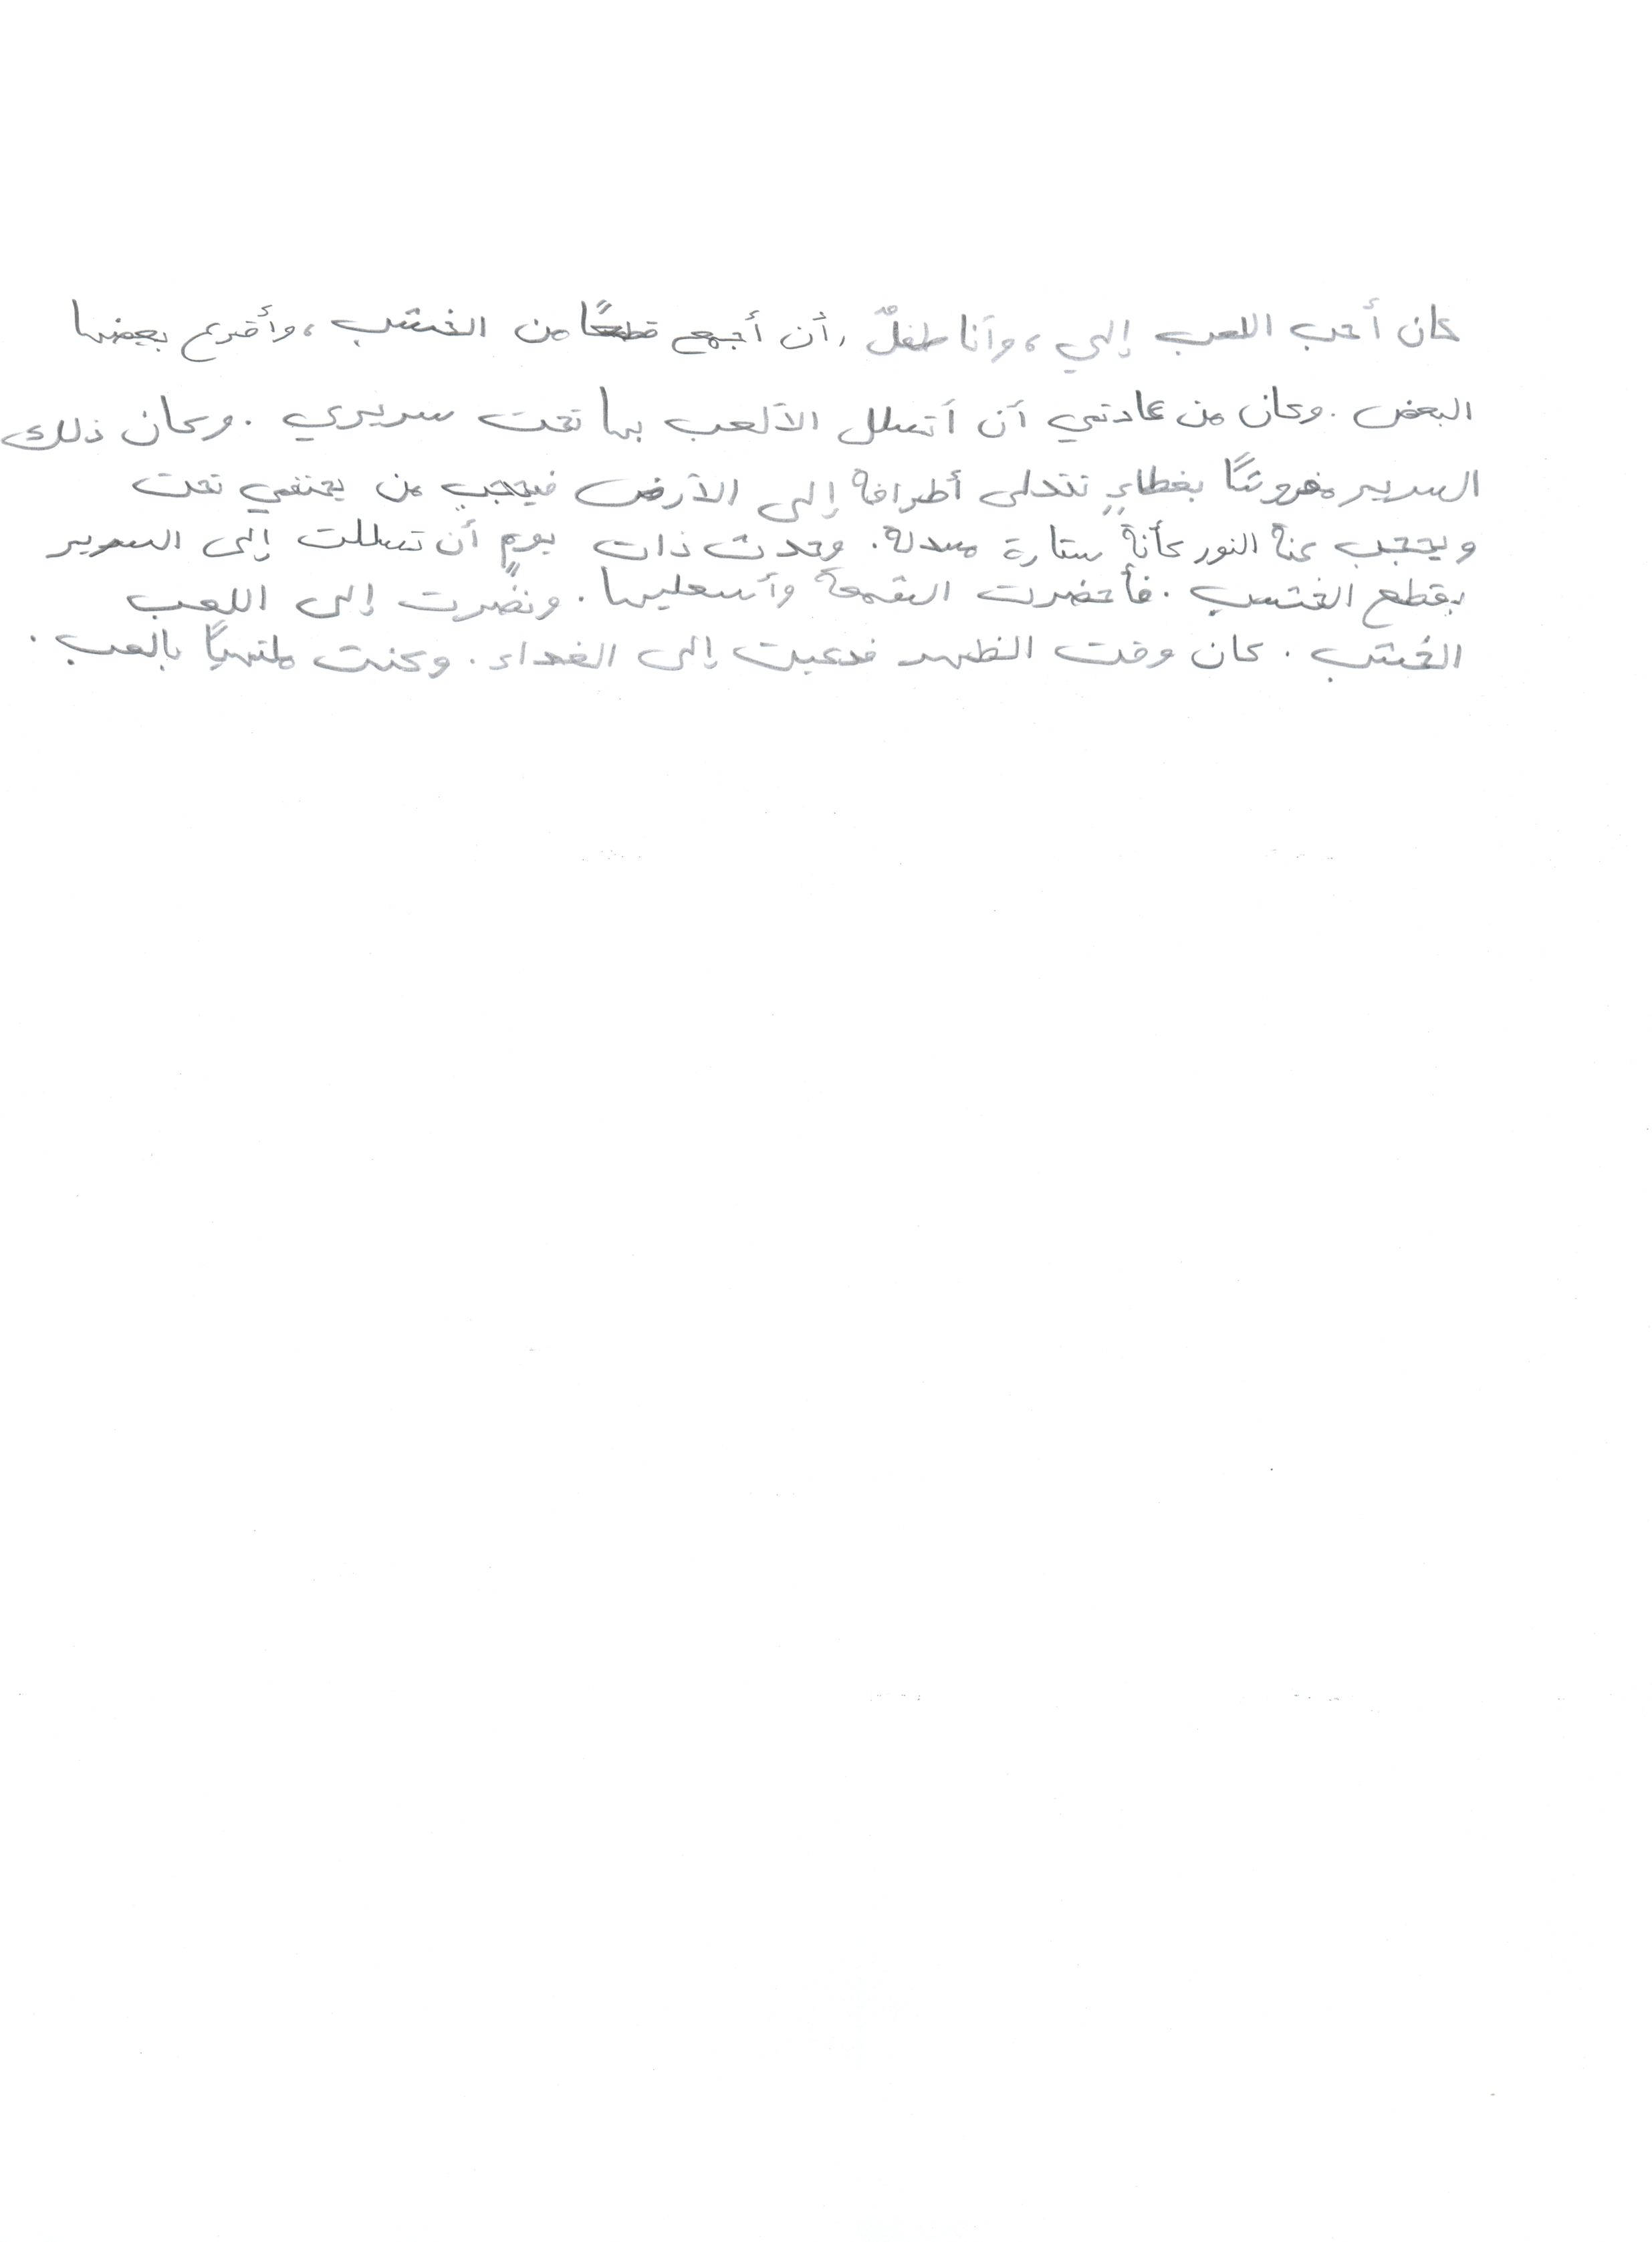 كان أحب اللعب إلي، وأنا طفلٌ، أن أجمع قطعًا من الخشب، وأقرع بعضها
البعض. وكان من عادتي أن أتسلل الألعب بها تحت سريري. وكان ذلك
السرير مفروشًا بغطاءٍ تتدلى أطرافة إلى الأرض فيحجب من يختفي تحت
ويحجب عنة النور كأنة ستارة مسدلة. وحدث ذات يومٍ أن تسللت إلى السرير
بقطع الخشب. فأحضرت الشمعة وأسعليها. ونضرت إلى اللعب
الخشب. كان وقت الظهر فدعيت إلى الغداء. وكنت ملتهيًا بالعب.